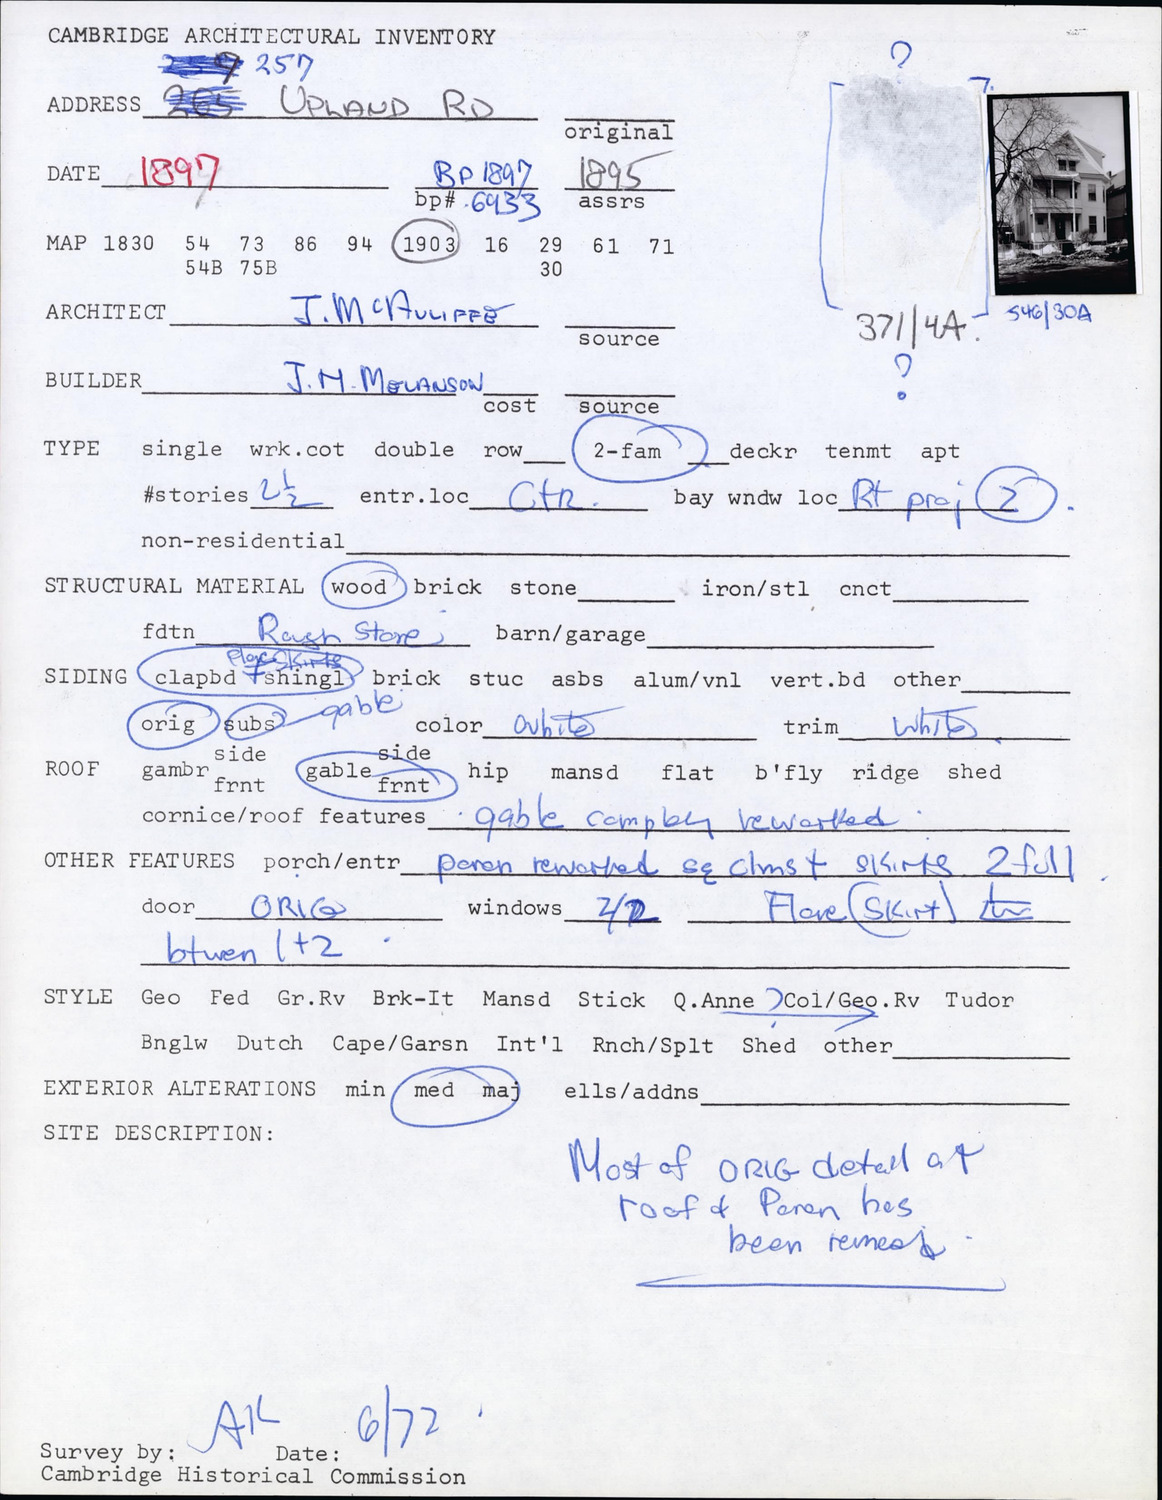 CAMBRIDGE ARCHITECTURAL INVENTORY
?
9 257
ADDRESS 265 UPLAND RD
original
DATE 1897 BP 1897 1895
bp# 6933 assrs
MAP 1830 54 73 86 94 1903 16 29 61 71
54B 75B 30
ARCHITECT J. McAULIFFE
source
371/4A.
546/30A
?
BUILDER J.H. MELANSON
cost source
TYPE single wrk.cot double row 2-fam deckr tenmt apt
#stories 2½ entr.loc Ctr. bay wndw loc Rt proj 2.
non-residential
STRUCTURAL MATERIAL wood brick stone iron/stl cnct
fdtn Rough Stone barn/garage
Flare Skirts
SIDING clapbd + shingl brick stuc asbs alum/vnl vert.bd other
orig subs gable color white trim white
side side
ROOF gambr gable hip mansd flat b'fly ridge shed
frnt frnt
cornice/roof features gable compley reworked
OTHER FEATURES porch/entr porch reworked sq clms + skirts 2 full
door ORIG windows 2/2 Flare (Skirt)
btwen 1+2
STYLE Geo Fed Gr.Rv Brk-It Mansd Stick Q.Anne Col/Geo.Rv Tudor
Bnglw Dutch Cape/Garsn Int'l Rnch/Splt Shed other
EXTERIOR ALTERATIONS min med maj ells/addns
SITE DESCRIPTION:
Most of ORIG detail at
roof & Porch has
been removed
Survey by: AK Date: 6/72
Cambridge Historical Commission